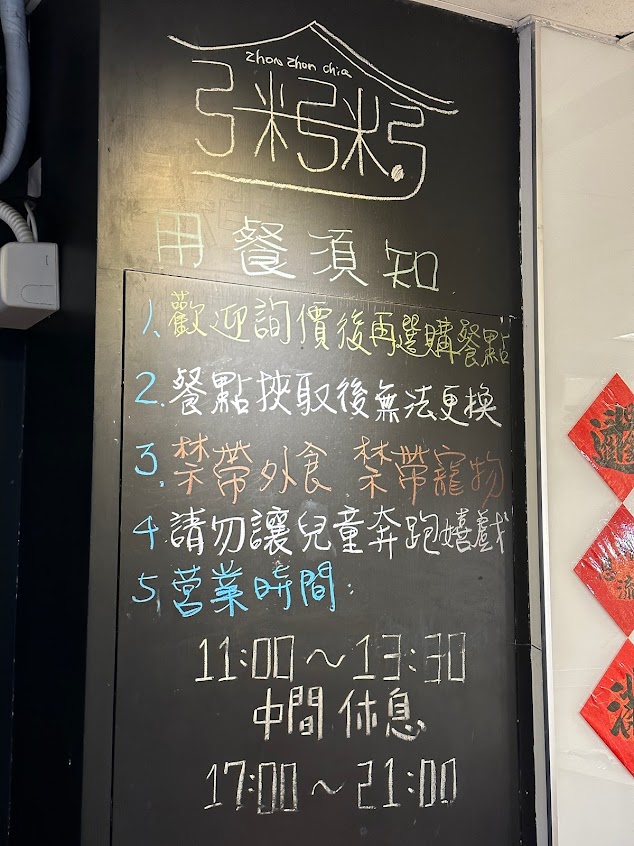 zhou zhou chia
粥粥
用餐須知
1、歡迎詢價後再選購餐點
2.餐點挾取後無法更換
3.禁帶外食 禁帶寵物
4.請勿讓兒童奔跑嬉戲
5.營業時間:
11:00~13:30
中間休息
17:00~21:00